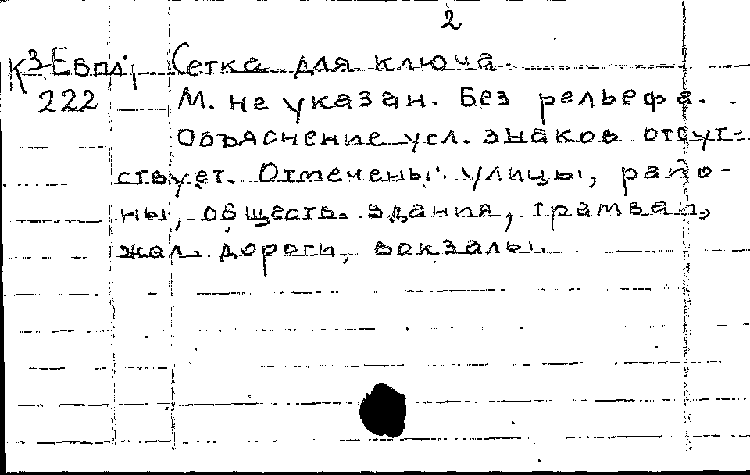 2
К3-Евпл, Сетка для ключа.
222 М. не указан. Без рельефа.
Объяснение усл. знаков отсут-
ствует. Отмечены улицы, райо-
ны, обществ. здания, трамвай,
жел. дороги, вокзалы.